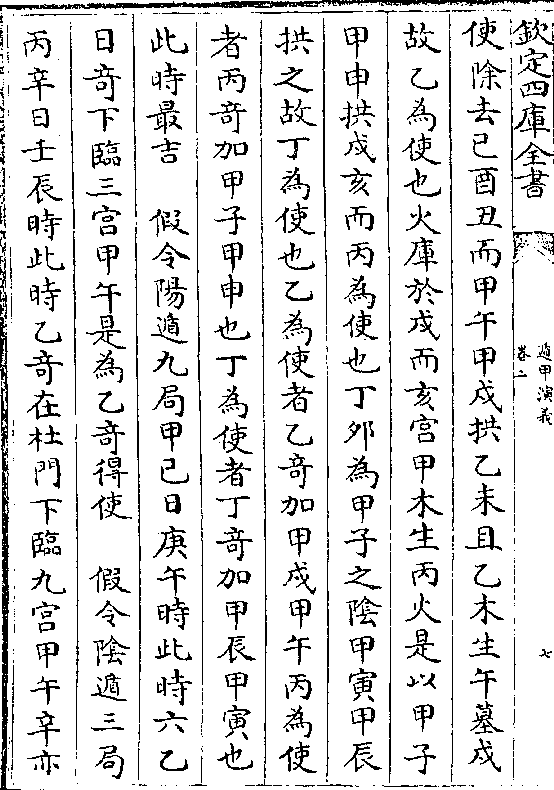 欽定四庫全書
遁甲演義
卷二
七
使除去已酉丑而甲午甲戍拱乙未且乙木生午墓戍
故乙為使也火庫於戍而亥宫甲木生丙火是以甲子
甲申拱戍亥而丙為使也丁夘為甲子之隂甲寅甲辰
拱之故丁為使也乙為使者乙竒加甲戍甲午丙為使
者丙竒加甲子甲申也丁為使者丁竒加甲辰甲寅也
此時最吉　假令陽遁九局甲己日庚午時此時六乙
日竒下臨三宫甲午是為乙竒得使　假令隂遁三局
丙辛日壬辰時此時乙竒在杜門下臨九宫甲午辛亦